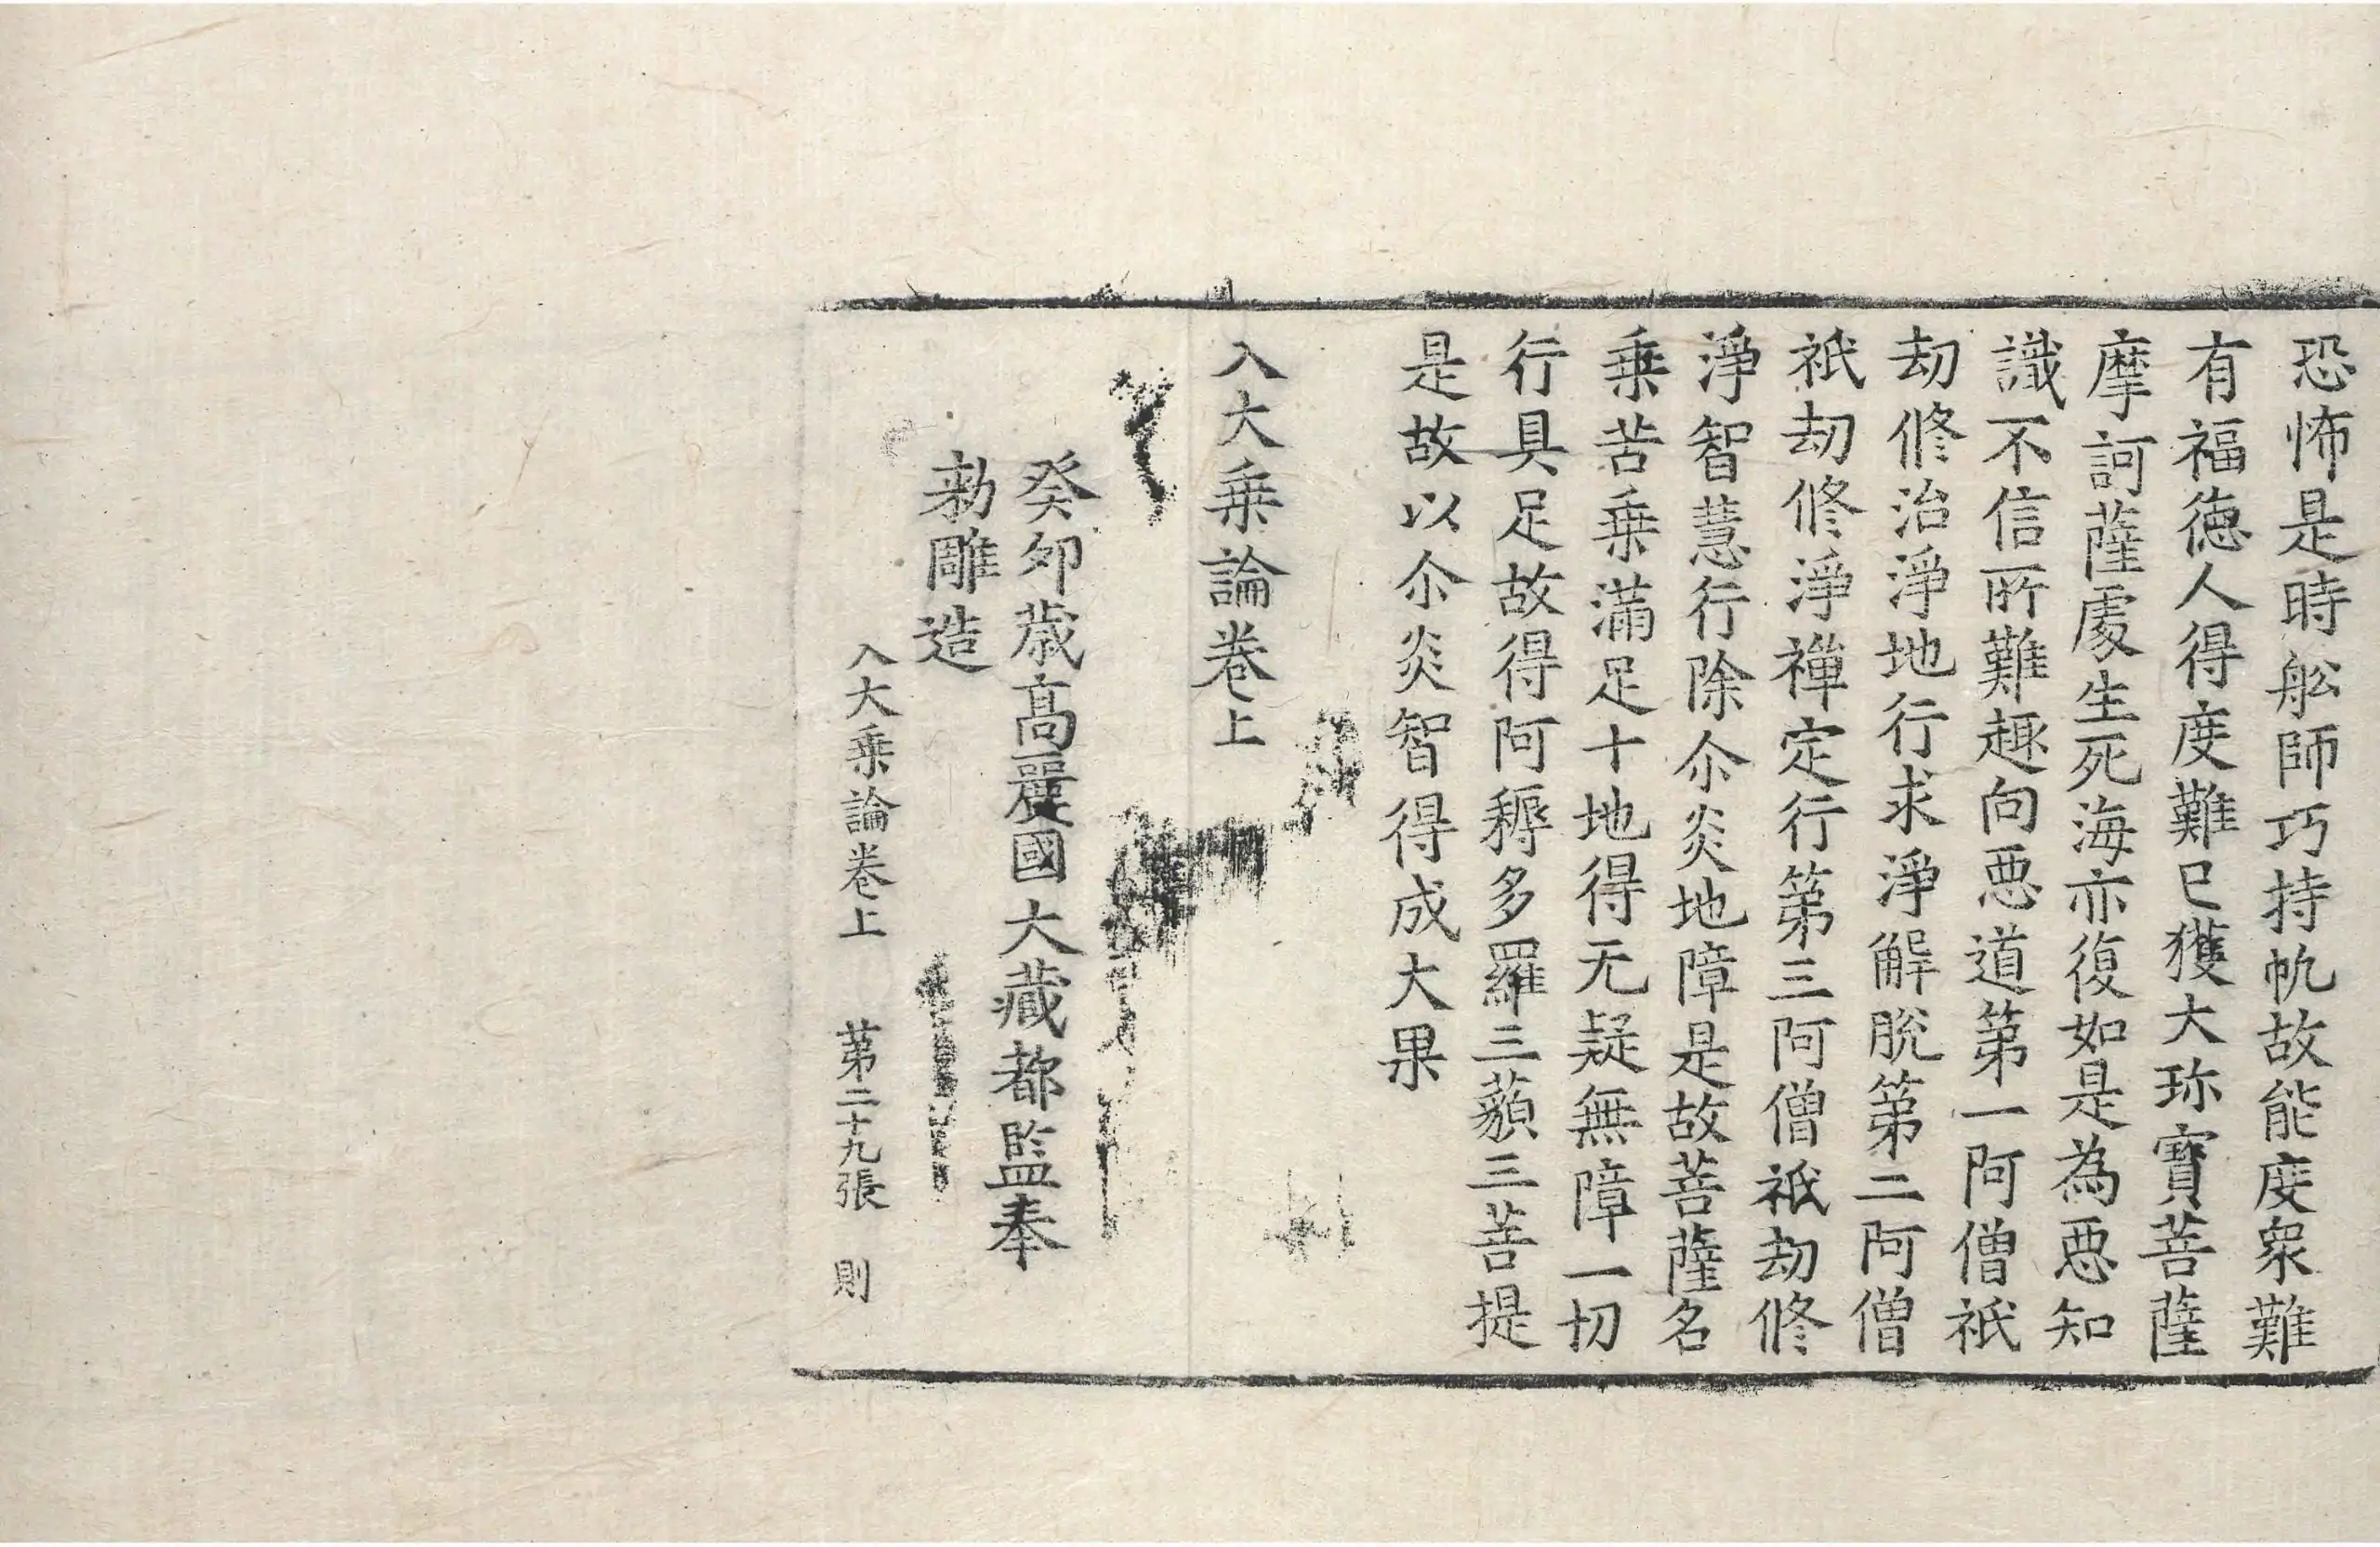 恐怖是時舩師巧持帆故能度衆難
有福德人得度難已獲大珎寶菩薩
摩訶薩處生死海亦復如是為惡知
識不信所難趣向惡道第一阿僧祇
劫修治淨地行求淨解脫第二阿僧
祇劫修淨禪定行第三阿僧祇劫修
淨智慧行除尒炎地障是故菩薩名
乗苦乗滿足十地得无疑無障一切
行具足故得阿耨多羅三藐三菩提
是故以尒炎智得成大果
入大乗論卷上
癸卯歲高麗國大藏都監奉
勑雕造
入大乗論卷上 第二十九張 則